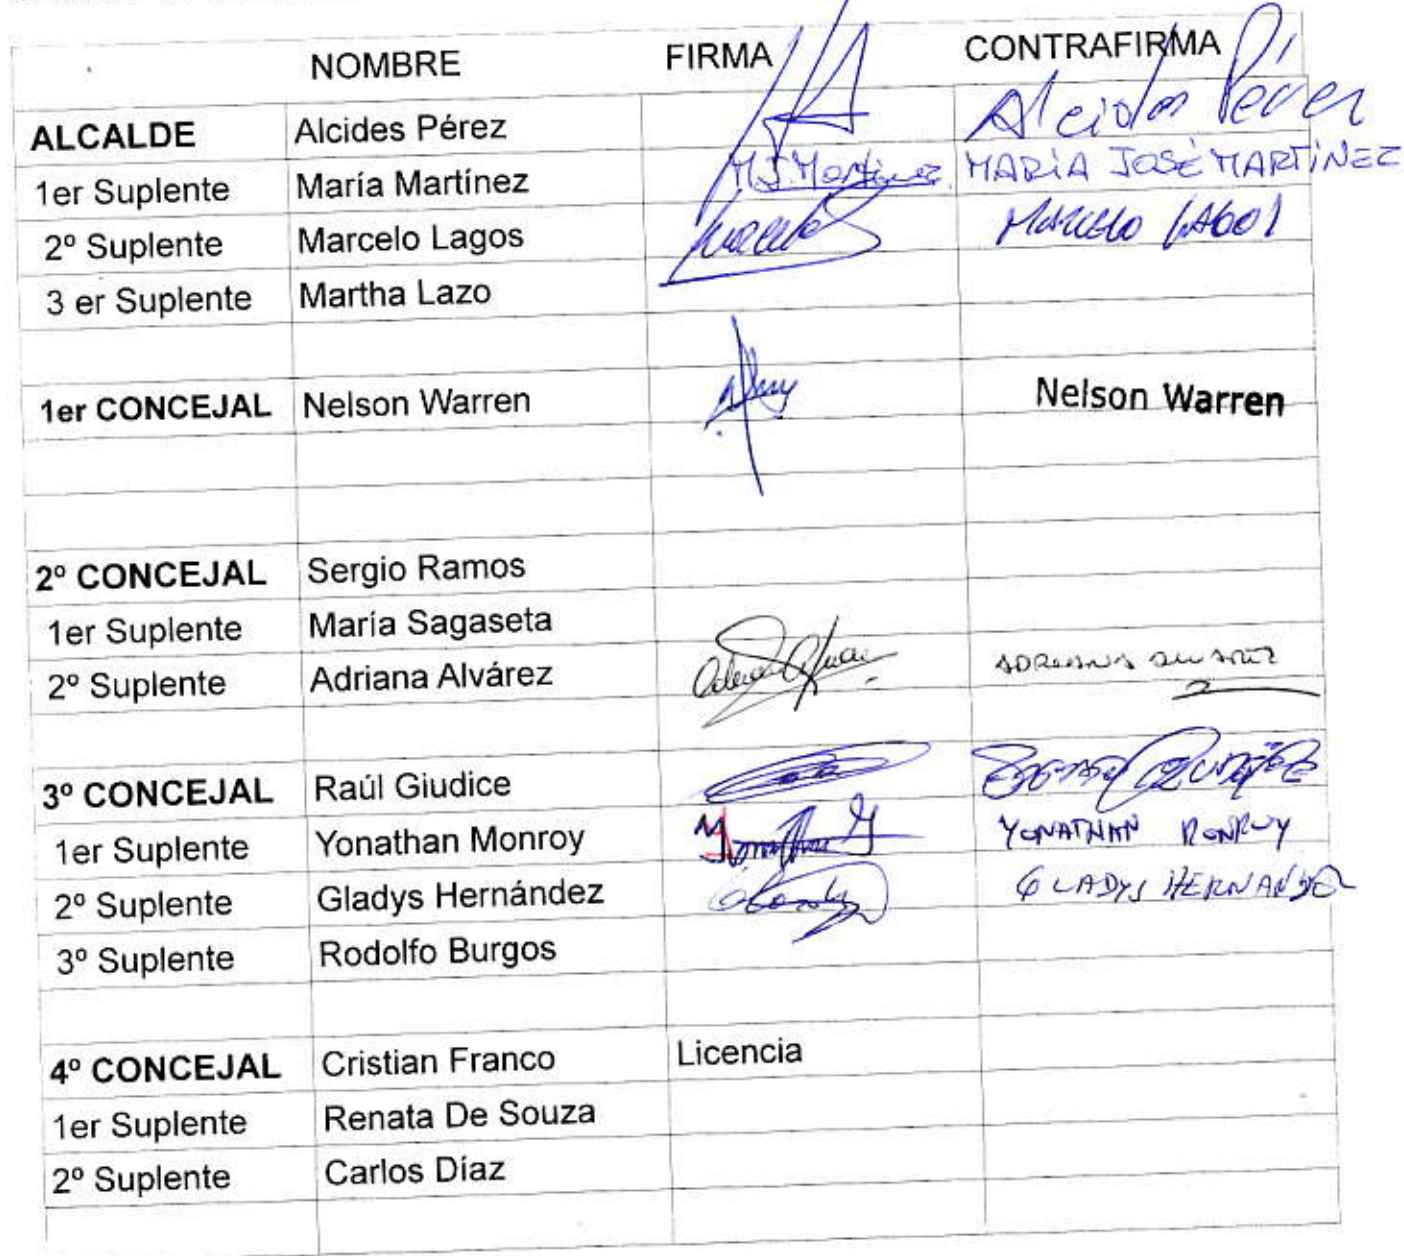 NOMBRE FIRMA CONTRAFIRMA
ALCALDE Alcides Pérez Alcides Pérez
1er Suplente María Martínez MJMartinez MARÍA JOSÉ MARTÍNEZ
2º Suplente Marcelo Lagos MARCELO LAGOS
3 er Suplente Martha Lazo
1er CONCEJAL Nelson Warren Nelson Warren
2º CONCEJAL Sergio Ramos
1er Suplente María Sagaseta
2º Suplente Adriana Alvárez ADRIANA ALVAREZ
3º CONCEJAL Raúl Giudice
1er Suplente Yonathan Monroy YONATHAN MONROY
2º Suplente Gladys Hernández GLADYS HERNANDEZ
3º Suplente Rodolfo Burgos
4º CONCEJAL Cristian Franco Licencia
1er Suplente Renata De Souza
2º Suplente Carlos Díaz